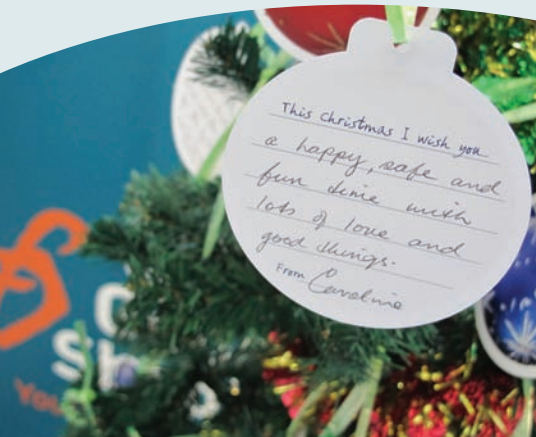 This Christmas I wish you
a happy, safe and
fun time with
lots of love and
good things.
From Caroline